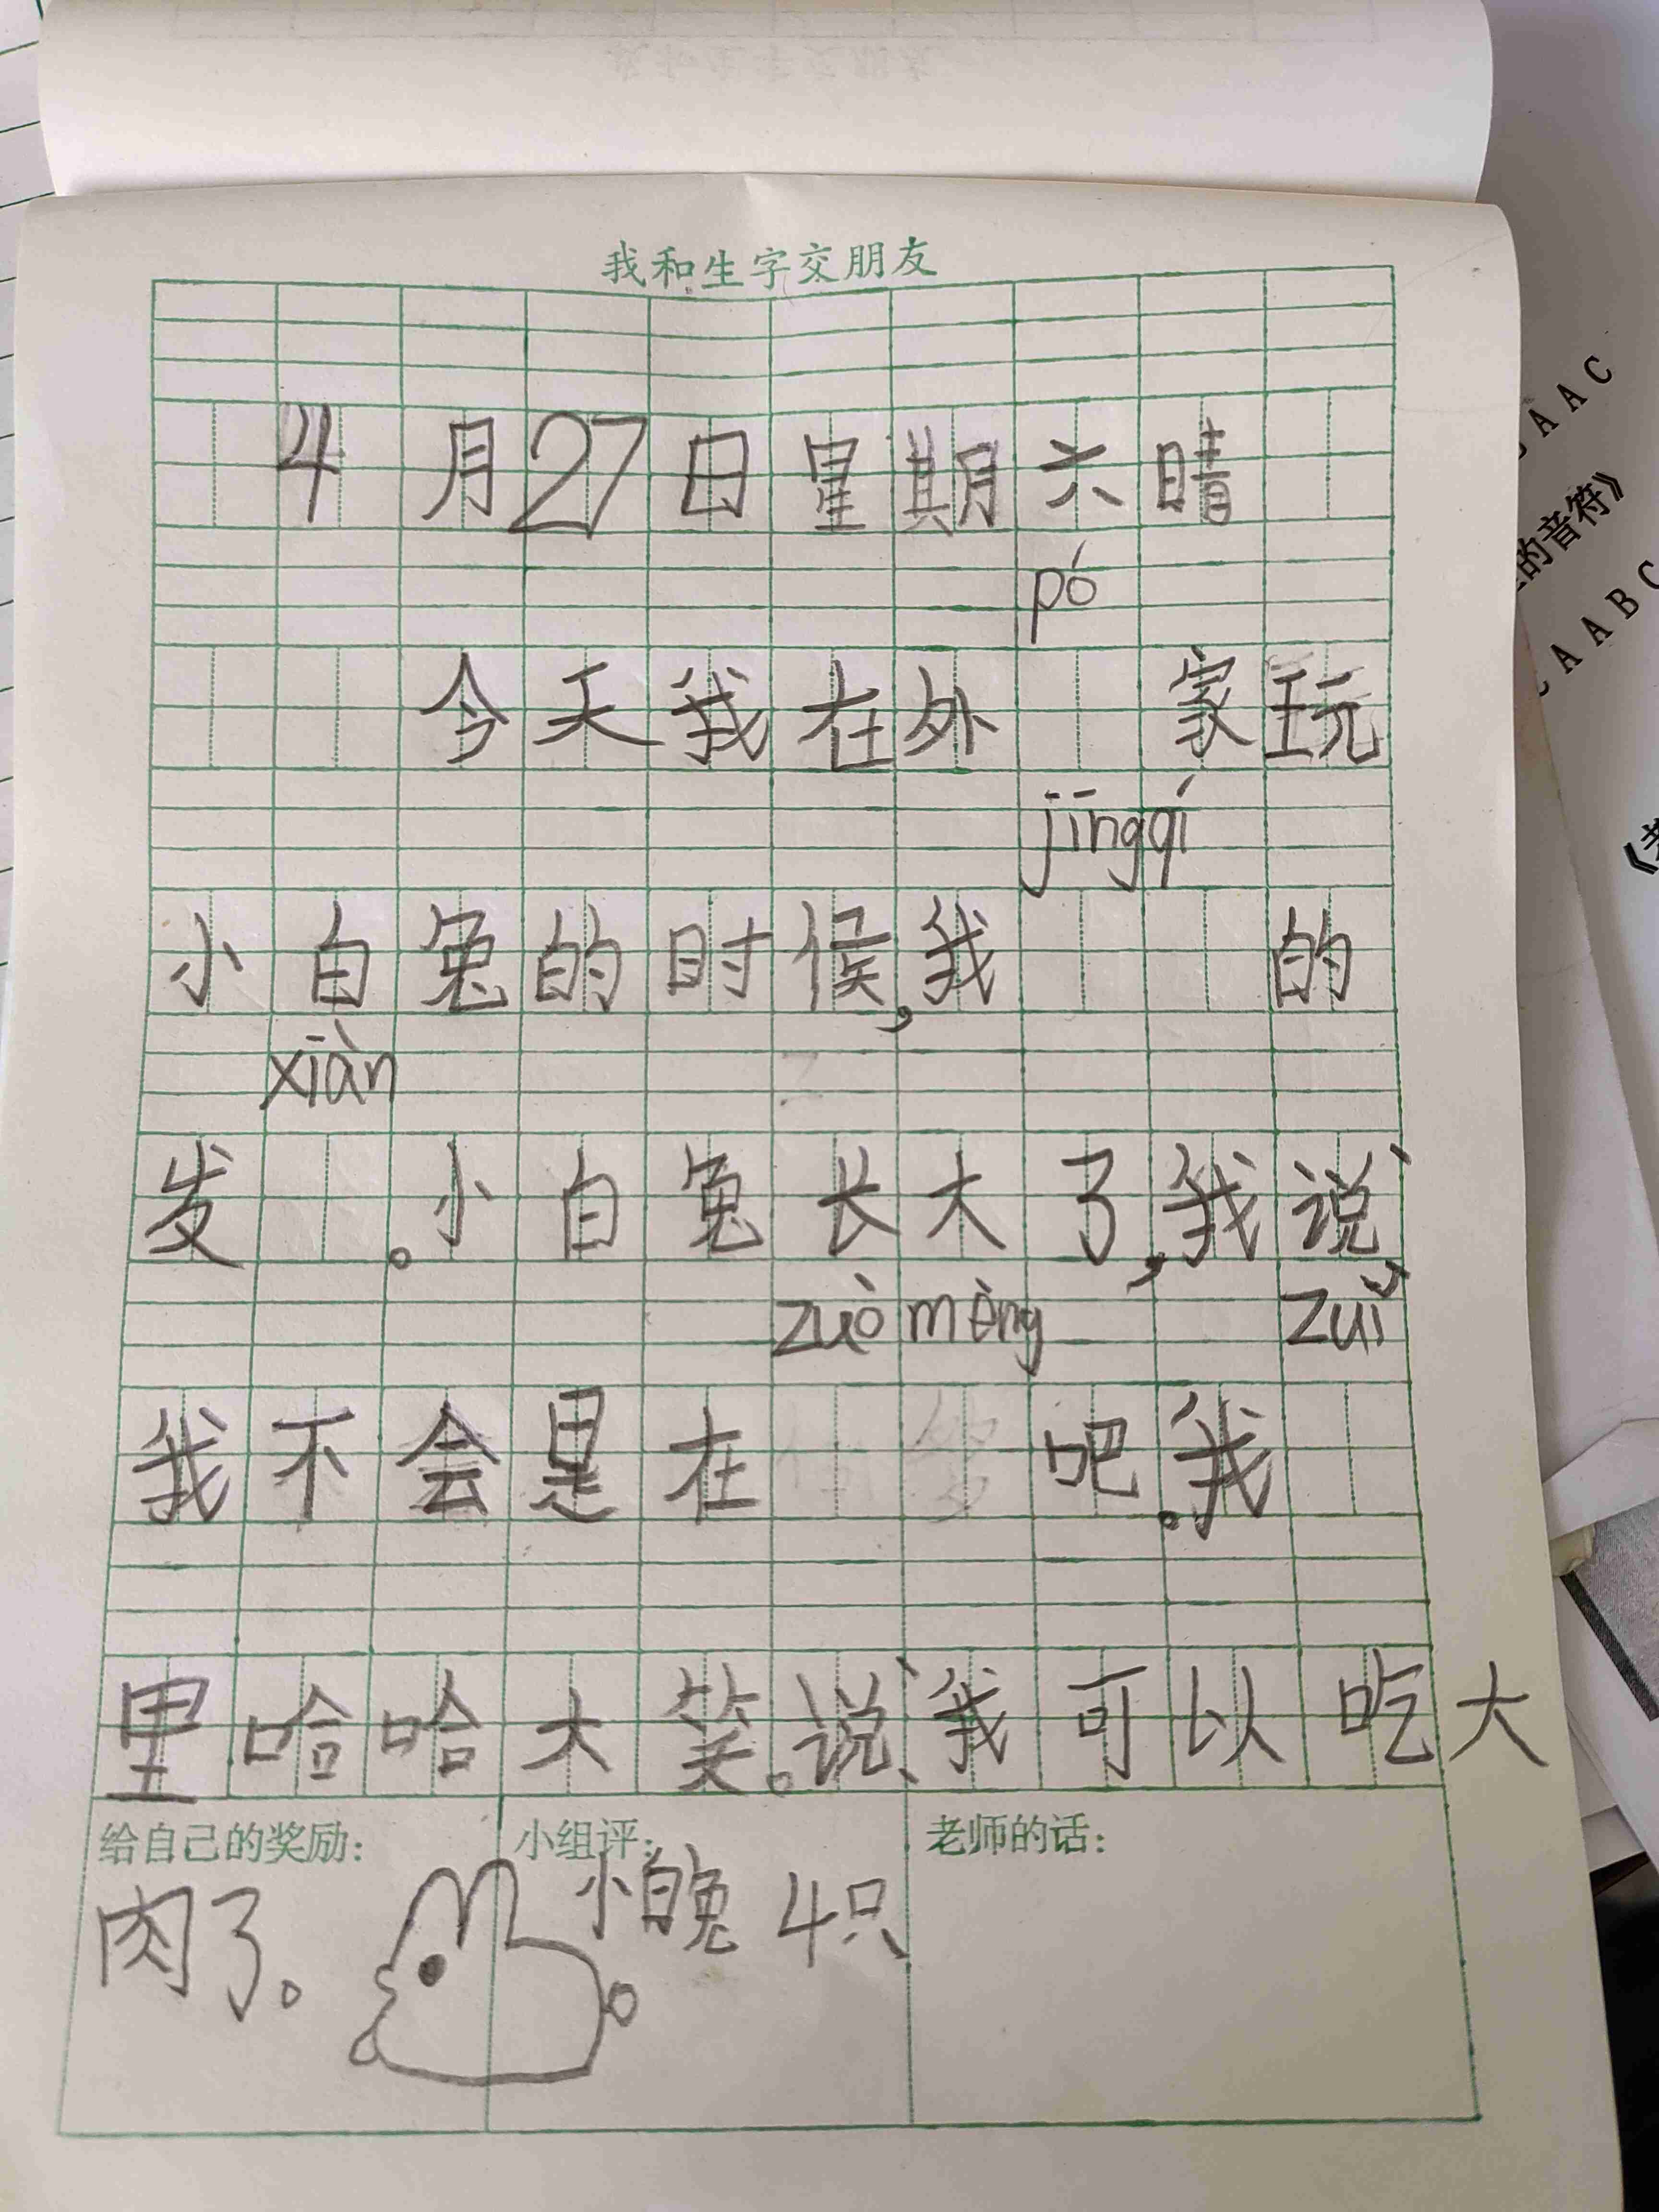 我和生字交朋友
4月27日星期六晴
pó
今天我在外 家玩
jīngqí
小白兔的时候,我 的
xiàn
发 。小白兔长大了,我说
zuò mèng zuǐ
我不会是在 吧。我
里哈哈大笑。说、我可以吃大
给自己的奖励: 小组评: 老师的话:
肉了。 小白兔 4只
AAC
的音符》
CAABC